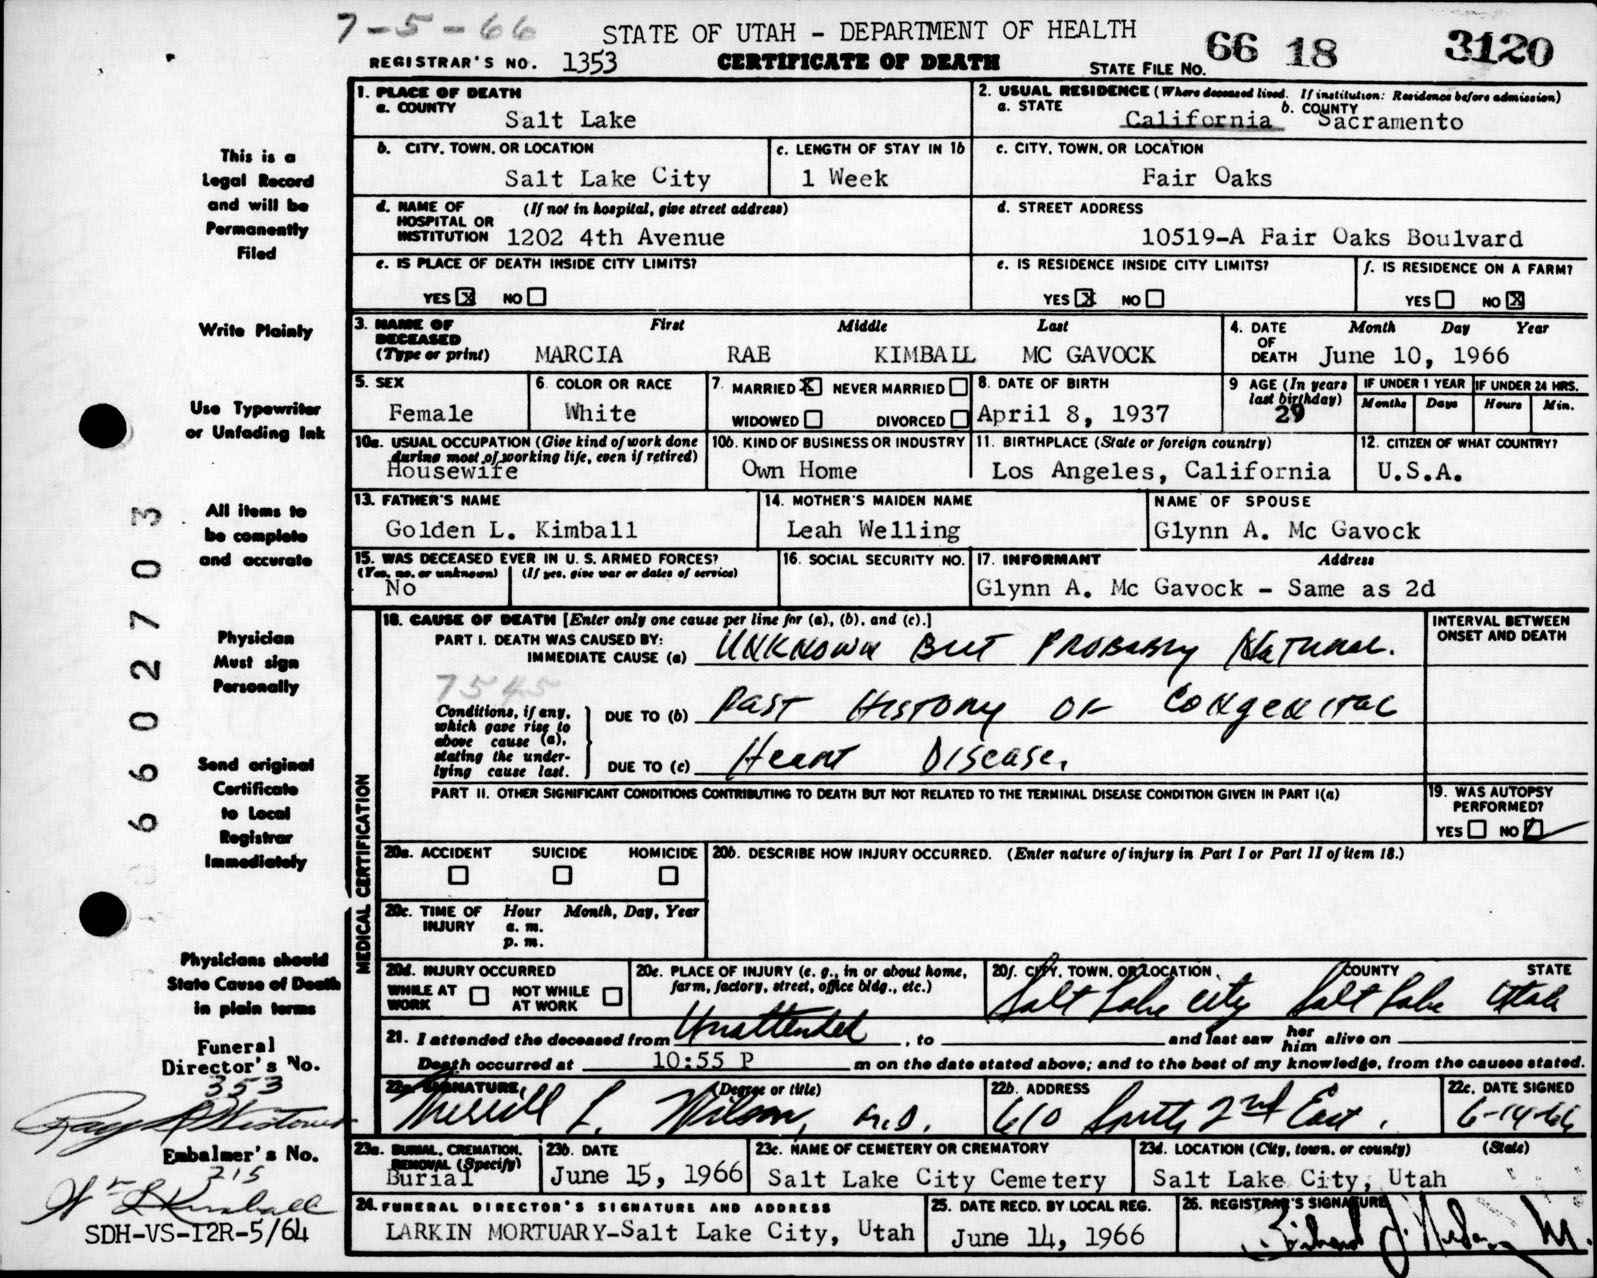 7-5-66
STATE OF UTAH - DEPARTMENT OF HEALTH
REGISTRAR'S NO. 1353
CERTIFICATE OF DEATH
STATE FILE NO. 66 18 3120
This is a
Legal Record
and will be
Permanently
Filed
Write Plainly
Use Typewriter
or Unfading Ink
All items to
be complete
and accurate
Physician
Must sign
Personally
Send original
Certificate
to Local
Registrar
Immediately
Physicians should
State Cause of Death
in plain terms
Funeral
Director's No.
353
Embalmer's No.
215
Wm L Kimball
SDH-VS-12R-5/64
6602703
1. PLACE OF DEATH
a. COUNTY
Salt Lake
2. USUAL RESIDENCE (Where deceased lived. If institution: Residence before admission)
a. STATE
California
b. COUNTY
Sacramento
b. CITY, TOWN, OR LOCATION
Salt Lake City
c. LENGTH OF STAY IN 1b
1 Week
c. CITY, TOWN, OR LOCATION
Fair Oaks
d. NAME OF HOSPITAL OR INSTITUTION (If not in hospital, give street address)
1202 4th Avenue
d. STREET ADDRESS
10519-A Fair Oaks Boulvard
e. IS PLACE OF DEATH INSIDE CITY LIMITS?
YES X NO
e. IS RESIDENCE INSIDE CITY LIMITS?
YES X NO
f. IS RESIDENCE ON A FARM?
YES NO X
3. NAME OF DECEASED (Type or print)
First Middle Last
MARCIA RAE KIMBALL MC GAVOCK
4. DATE OF DEATH Month Day Year
June 10, 1966
5. SEX
Female
6. COLOR OR RACE
White
7. MARRIED X NEVER MARRIED
WIDOWED DIVORCED
8. DATE OF BIRTH
April 8, 1937
9 AGE (In years last birthday)
29
IF UNDER 1 YEAR
Months Days
IF UNDER 24 HRS.
Hours Min.
10a. USUAL OCCUPATION (Give kind of work done during most of working life, even if retired)
Housewife
10b. KIND OF BUSINESS OR INDUSTRY
Own Home
11. BIRTHPLACE (State or foreign country)
Los Angeles, California
12. CITIZEN OF WHAT COUNTRY?
U.S.A.
13. FATHER'S NAME
Golden L. Kimball
14. MOTHER'S MAIDEN NAME
Leah Welling
NAME OF SPOUSE
Glynn A. Mc Gavock
15. WAS DECEASED EVER IN U. S. ARMED FORCES?
(Yes, no, or unknown) (If yes, give war or dates of service)
No
16. SOCIAL SECURITY NO.
17. INFORMANT Address
Glynn A. Mc Gavock - Same as 2d
MEDICAL CERTIFICATION
18. CAUSE OF DEATH [Enter only one cause per line for (a), (b), and (c).]
INTERVAL BETWEEN
ONSET AND DEATH
PART I. DEATH WAS CAUSED BY:
IMMEDIATE CAUSE (a) Unknown But Probably Natural.
7545
Conditions, if any, which gave rise to above cause (a), stating the underlying cause last.
DUE TO (b) Past History of Congenital
DUE TO (c) Heart Disease.
PART II. OTHER SIGNIFICANT CONDITIONS CONTRIBUTING TO DEATH BUT NOT RELATED TO THE TERMINAL DISEASE CONDITION GIVEN IN PART I(a)
19. WAS AUTOPSY PERFORMED?
YES NO ✓
20a. ACCIDENT SUICIDE HOMICIDE
20b. DESCRIBE HOW INJURY OCCURRED. (Enter nature of injury in Part I or Part II of item 18.)
20c. TIME OF INJURY Hour Month, Day, Year
a. m.
p. m.
20d. INJURY OCCURRED
WHILE AT WORK NOT WHILE AT WORK
20e. PLACE OF INJURY (e. g., in or about home, farm, factory, street, office bldg., etc.)
20f. CITY, TOWN, OR LOCATION COUNTY STATE
Salt Lake City Salt Lake Utah
21. I attended the deceased from Unattended, to and last saw her him alive on
Death occurred at 10:55 P m on the date stated above; and to the best of my knowledge, from the causes stated.
22a. SIGNATURE (Degree or title)
Merrill L. Wilson, M.D.
22b. ADDRESS
610 South 2nd East.
22c. DATE SIGNED
6-14-66
23a. BURIAL, CREMATION, REMOVAL (Specify)
Burial
23b. DATE
June 15, 1966
23c. NAME OF CEMETERY OR CREMATORY
Salt Lake City Cemetery
23d. LOCATION (City, town, or county) (State)
Salt Lake City, Utah
24. FUNERAL DIRECTOR'S SIGNATURE AND ADDRESS
LARKIN MORTUARY-Salt Lake City, Utah
25. DATE RECD. BY LOCAL REG.
June 14, 1966
26. REGISTRAR'S SIGNATURE